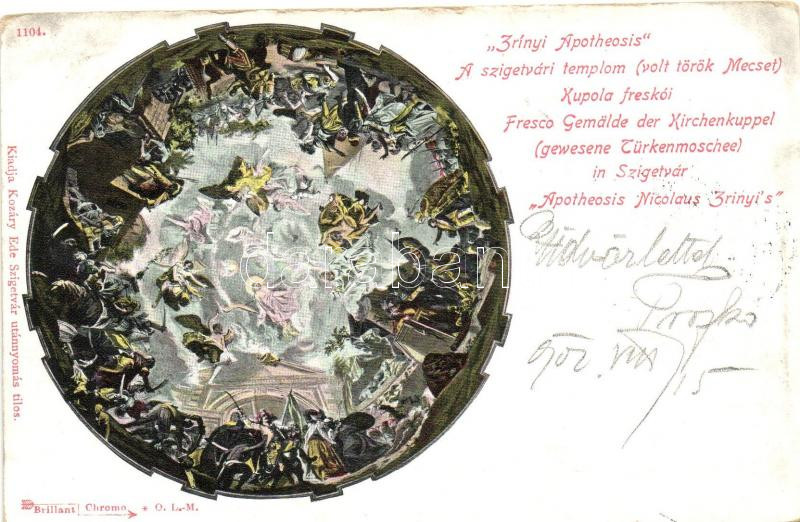 1104.
„Zrínyi Apotheosis"
A szigetvári templom (volt török Mecset)
Kupola freskói
Fresco Gemälde der Kirchenkuppel
(gewesene Türkenmoschee)
in Szigetvár
„Apotheosis Nicolaus Zrinyi's"
Üdvözlettel
902. VIII/15
Kiadja Kozáry Ede Szigetvár utánnyomás tilos.
Brillant Chromo * O. L.-M.
darabanth